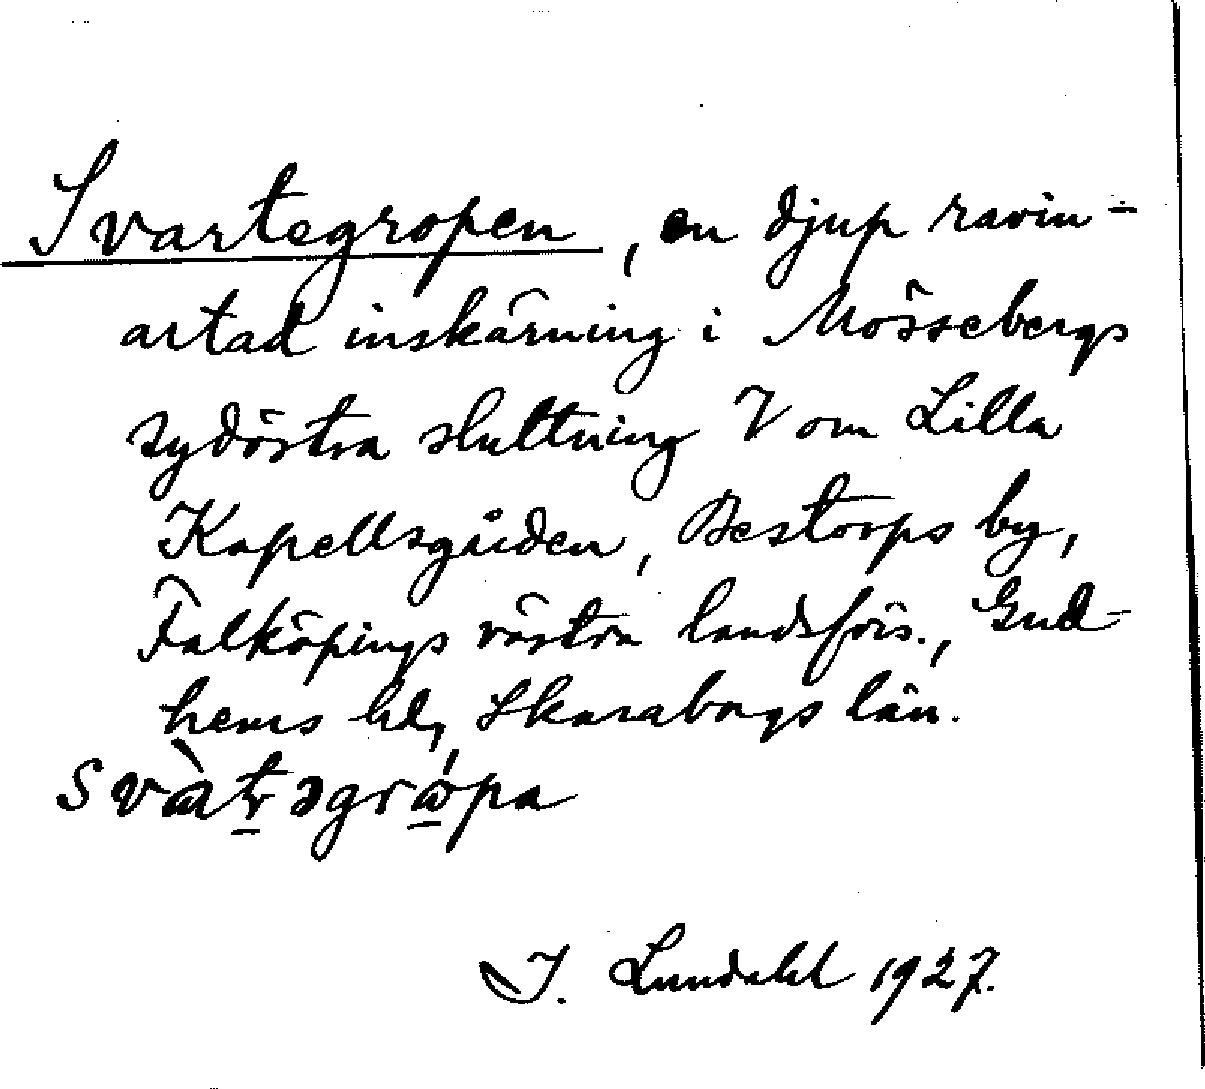 Svartegropen, en djup ravin-
artad inskärning i Mössebergs
sydöstra sluttning V om Lilla
Kapellsgården, Bestorps by,
Falköpings västra landsförs., Gud-
hems hd, Skaraborgs län.
I. Lundahl 1927.